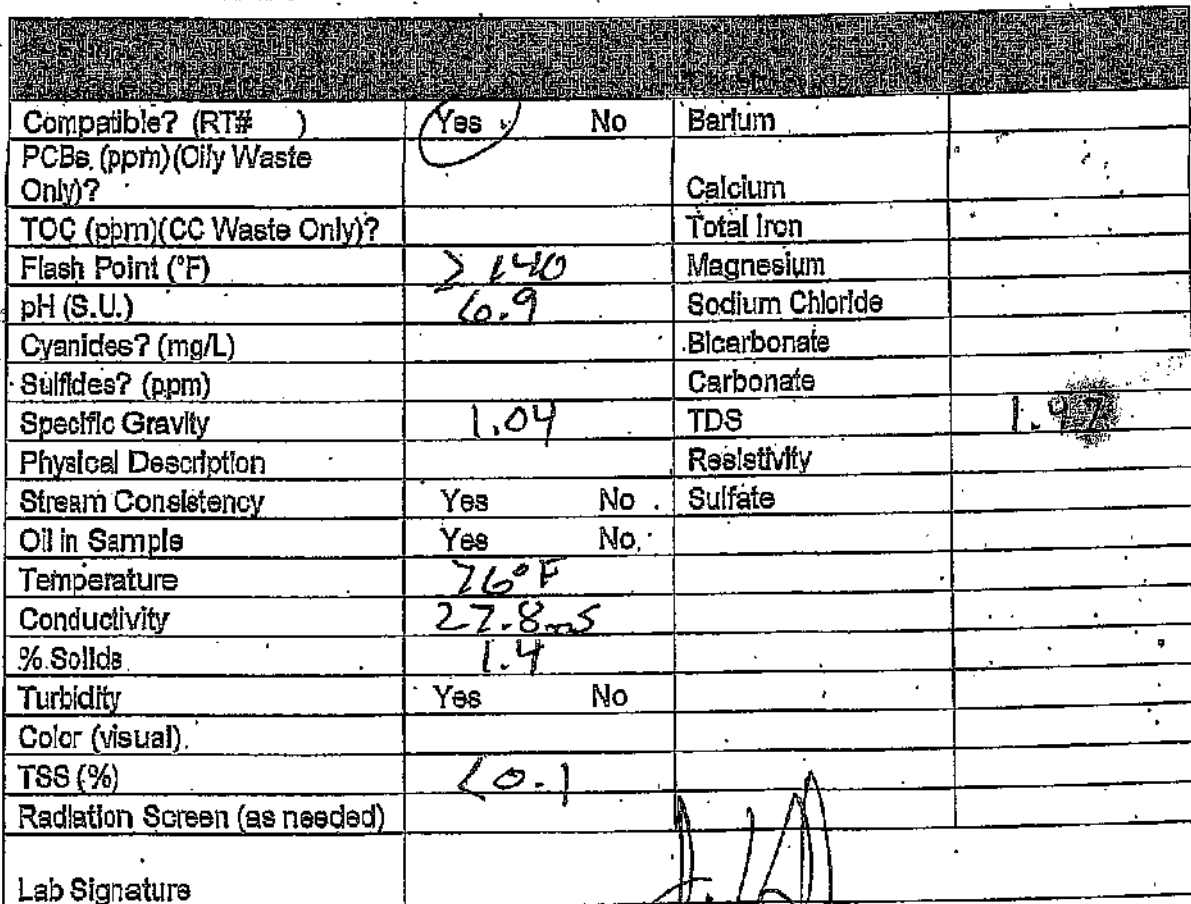 Compatible? (RT# ) Yes No Barium
PCBs (ppm)(Oily Waste
Only)? Calcium
TOC (ppm)(CC Waste Only)? Total Iron
Flash Point (°F) >140 Magnesium
pH (S.U.) 6.9 Sodium Chloride
Cyanides? (mg/L) Bicarbonate
Sulfides? (ppm) Carbonate
Specific Gravity 1.04 TDS
Physical Description Resistivity
Stream Consistency Yes No Sulfate
Oil in Sample Yes No
Temperature 76°F
Conductivity 27.8mS
% Solids 1.4
Turbidity Yes No
Color (visual)
TSS (%) <0.1
Radiation Screen (as needed)
Lab Signature